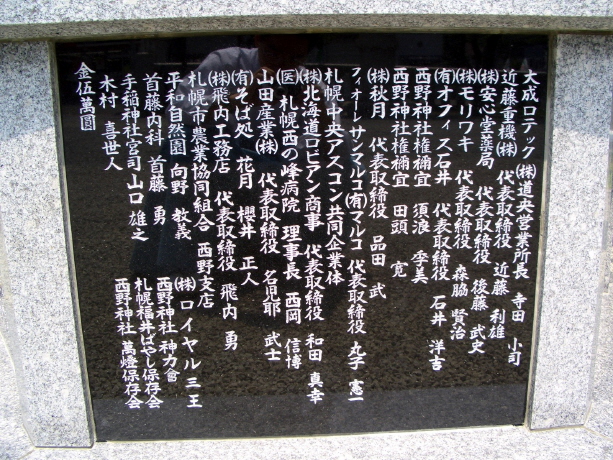 大成ロテック㈱道央営業所長 寺田 小司
近藤重機㈱ 代表取締役 近藤 利雄
㈱安心堂薬局 代表取締役 後藤 武史
㈱モリワキ 代表取締役 森脇 賢治
㈲オフィス石井 代表取締役 石井 洋吉
西野神社権禰宜 須浪 孝美
西野神社権禰宜 田頭 寛
㈱秋月 代表取締役 品田 武
フィオーレサンマルコ㈲マルコ 代表取締役 丸子 憲一
札幌中央アスコン共同企業体
㈱北海道ロビアン商事 代表取締役 和田 真幸
㈩札幌西の峰病院 理事長 西岡 信博
山田産業㈱ 代表取締役 名児耶 武士
㈲そば処 花月 櫻井 正人
㈱飛内工務店 代表取締役 飛内 勇
札幌市農業協同組合 西野支店
平和自然園 向野 教義
首藤内科 首藤 勇
手稲神社宮司 山口 雄之
木村 喜世人
㈱ロイヤル三王
西野神社 神力會
札幌福井ばやし保存会
西野神社 萬燈保存会
金伍萬圓